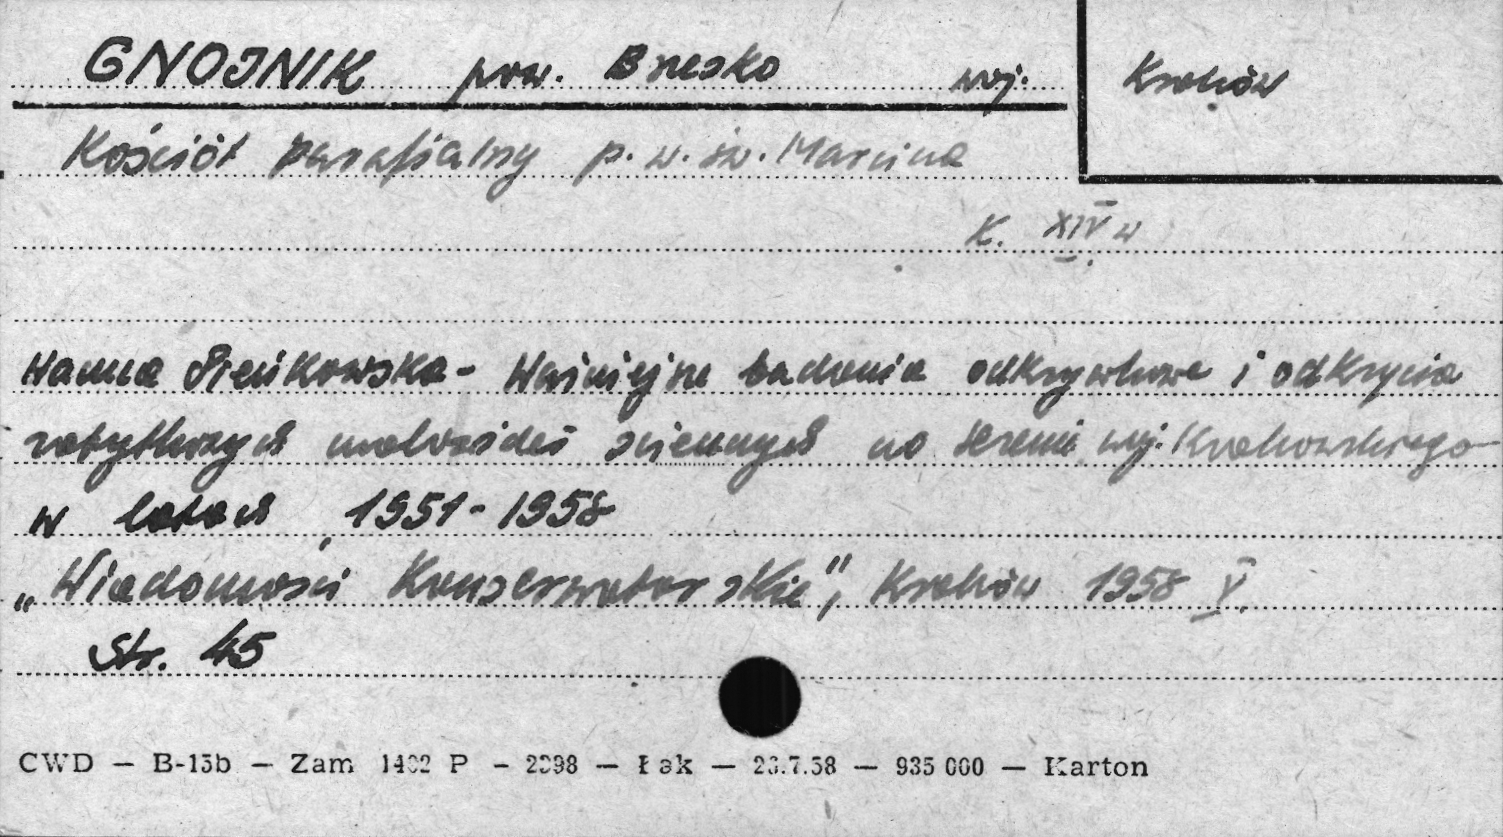 GNOJNIK pow. Brzesko woj. Kraków
Kościół parafialny p. w. św. Marcina
K. XIV w.
Hanna Pieńkowska - Ważniejsze badania odkrywkowe i odkrycia
zabytkowych malowideł ściennych na terenie woj. Krakowskiego
w latach 1951-1958
„Wiadomości Konserwatorskie", Kraków 1958 V.
Str. 45
CWD — B-15b — Zam 1402 P - 2398 — Łak — 23.7.58 — 935 000 — Karton